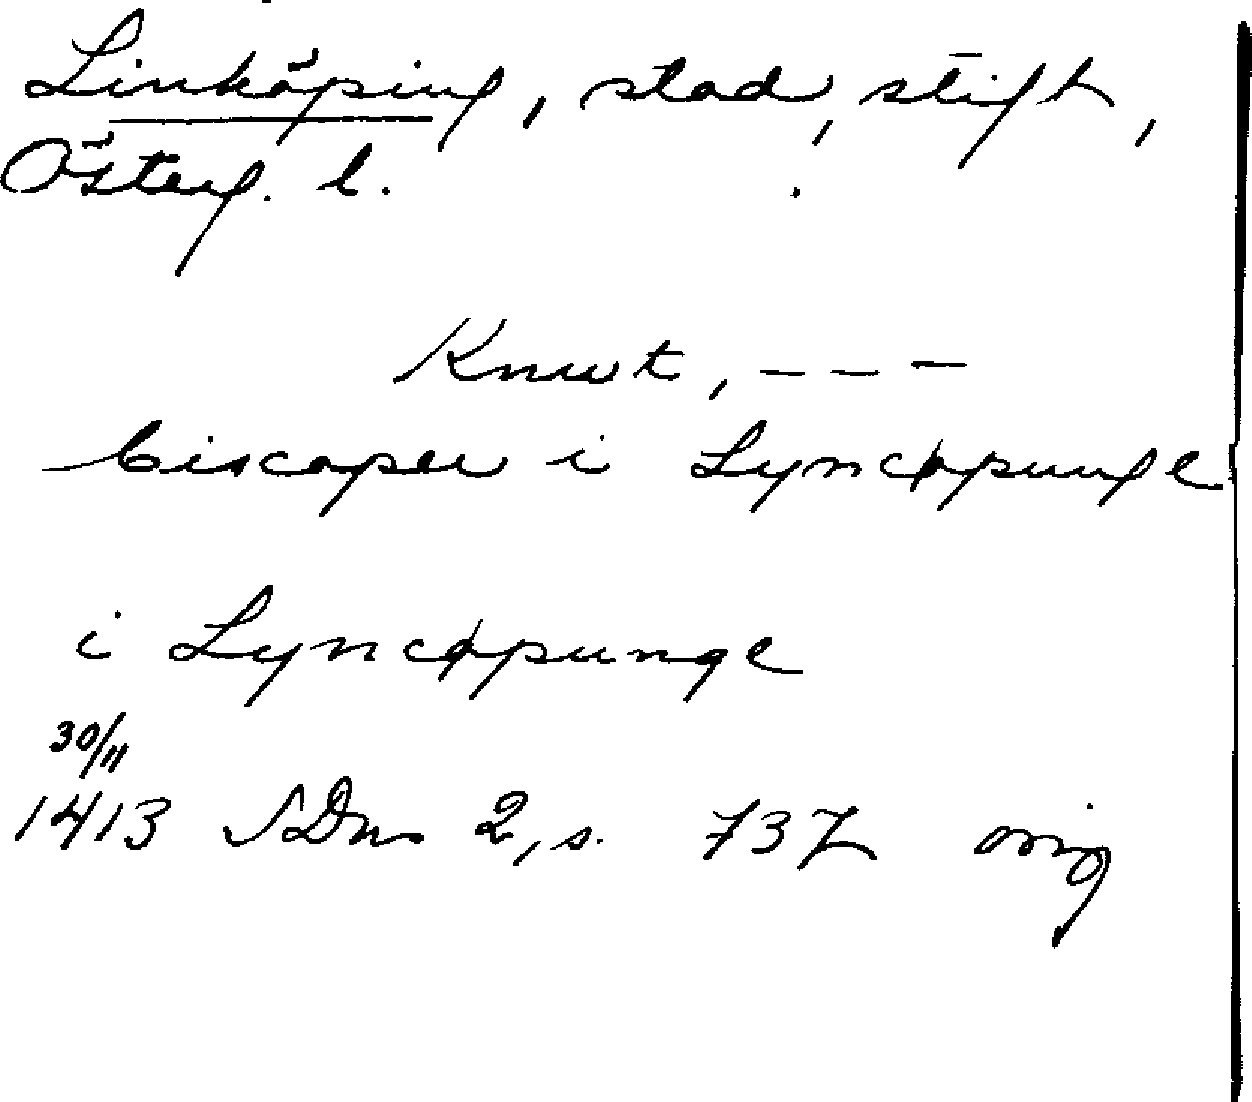 Linköping, stad, stift,
Österg. l.
Knwt, - - -
biscaper i Lyncøpunge
i Lyncøpunge
30/11
1413 SDns 2, s. 737 orig